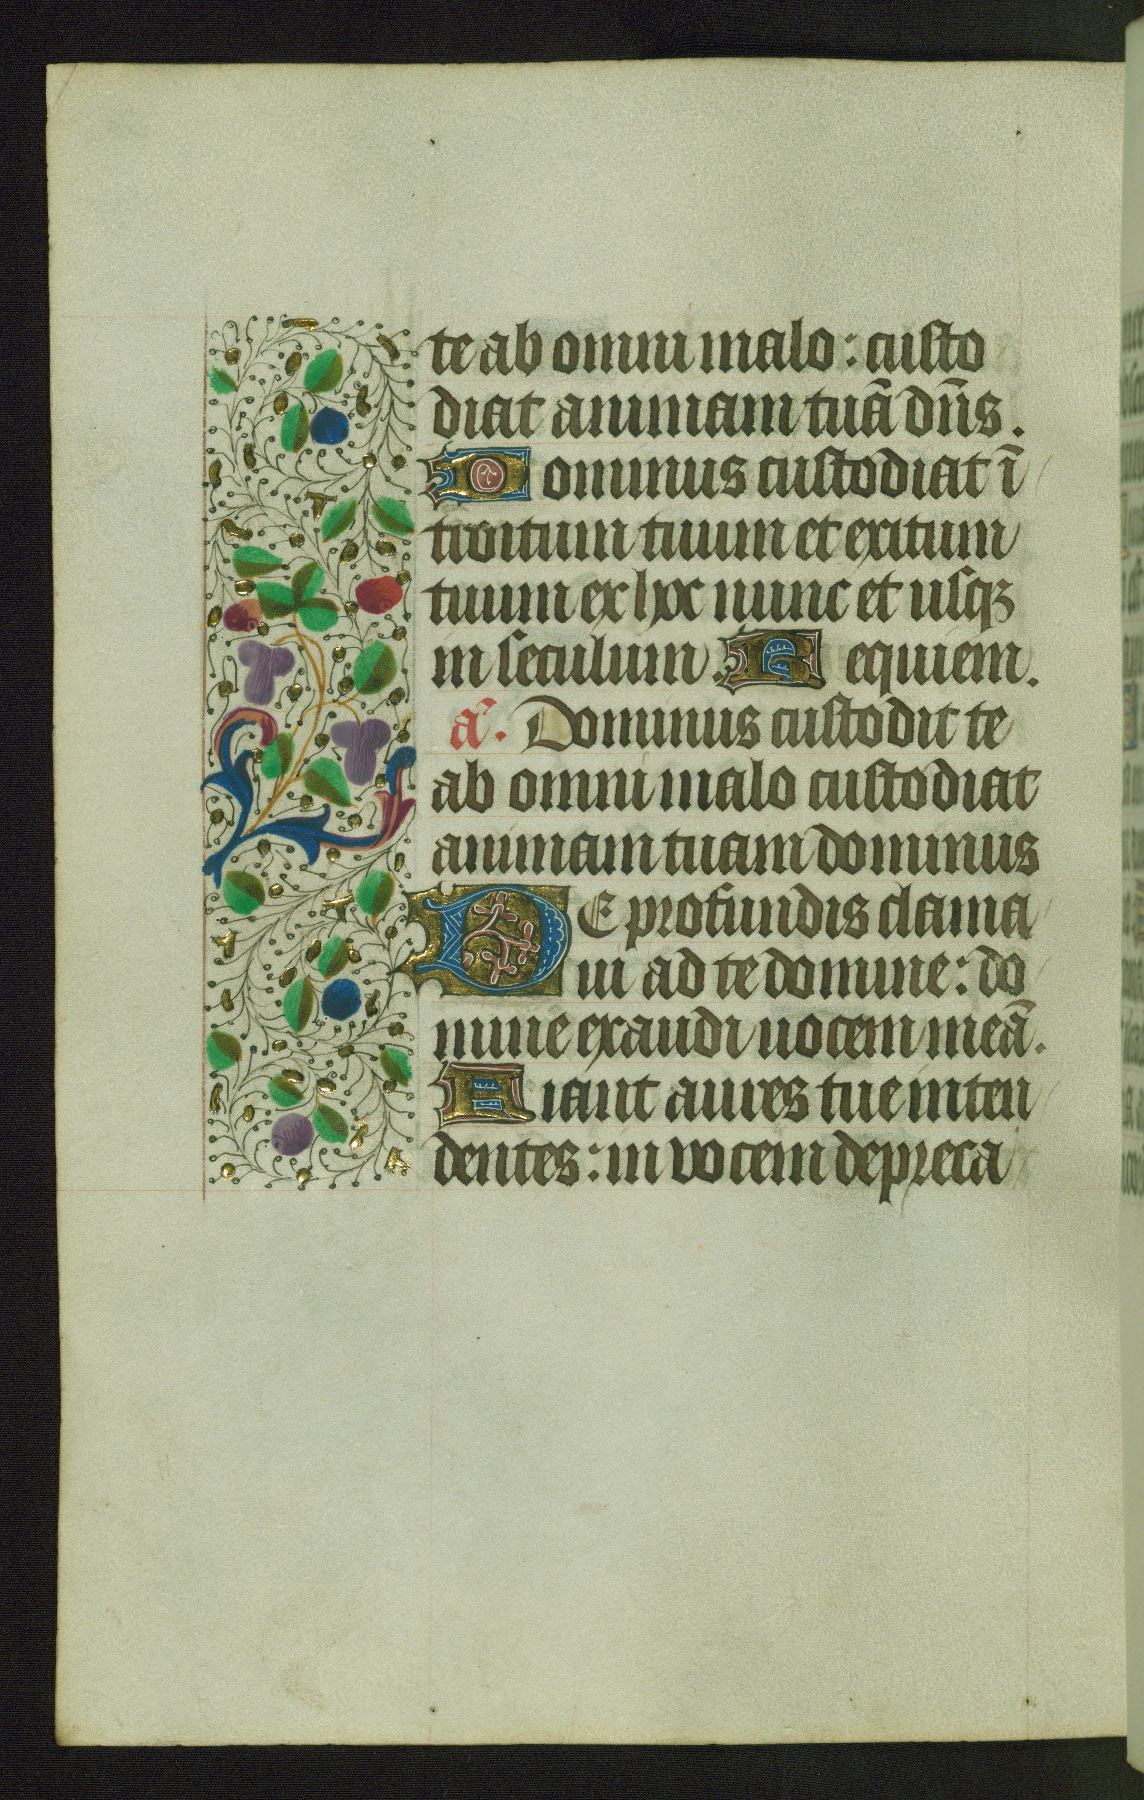 te ab omni malo : custo
diat animam tuā dn̄s .
Dominus custodiat ī
troitum tuum et exitum
tuum ex hoc nunc et usqꝫ
in seculum . Requiem .
a᷎ . Dominus custodit te
ab omni malo custodiat
animam tuam dominus
DE profundis clama
ui ad te domine : do
mine exaudi uocem meā .
Fiant aures tue inten
dentes : in vocem depreca